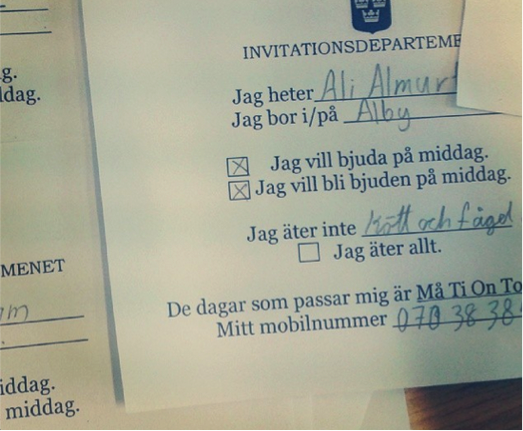 g.
ldag.
INVITATIONSDEPARTEME
Jag heter Ali Almur
Jag bor i/på Alby
Jag vill bjuda på middag.
Jag vill bli bjuden på middag.
Jag äter inte kött och fågel
Jag äter allt.
De dagar som passar mig är Må Ti On To
Mitt mobilnummer 070 38 38
MENET
iddag.
middag.